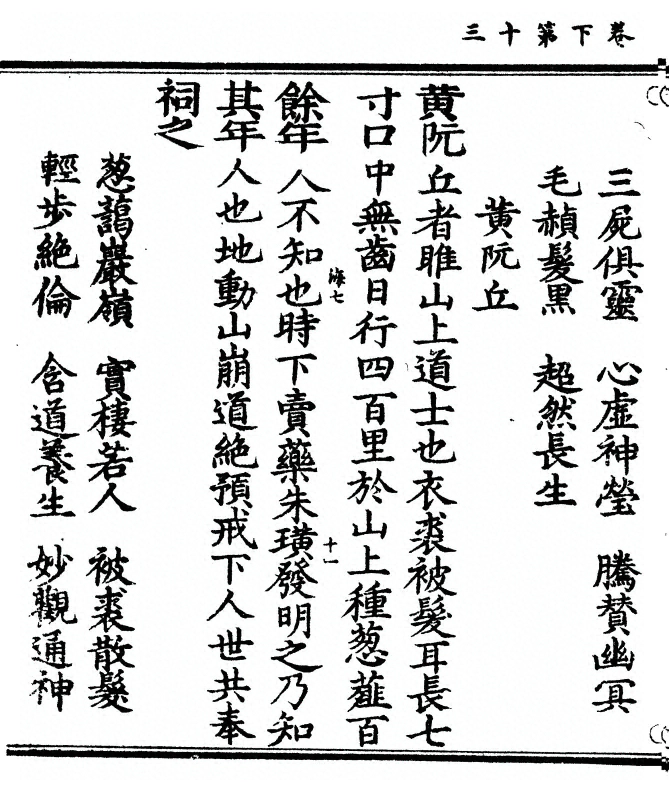 卷下第十三
三屍俱靈　心虛神瑩　騰贊幽冥
毛赬髮黑　超然長生
黃阮丘
黃阮丘者睢山上道士也衣裘被髮耳長七
寸口中無齒日行四百里於山上種葱薤百
海七　十一
餘年人不知也時下賣藥朱璜發明之乃知
其年人也地動山崩道絶預戒下人世共奉
祠之
葱藹巖嶺　實棲若人　被裘散髮
輕步絶倫　含道養生　妙觀通神